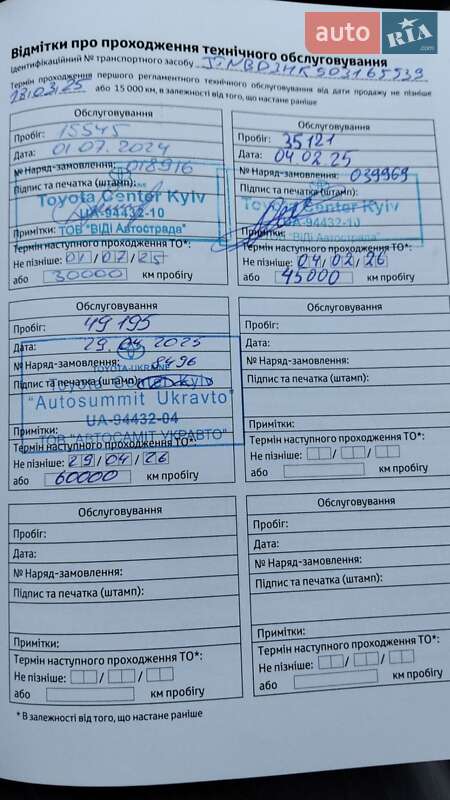 auto RIA.com
Відмітки про проходження технічного обслуговування
Ідентифікаційний № транспортного засобу
Термін проходження першого регламентного технічного обслуговування від дати продажу не пізніше
28.03.25 або 15 000 км, в залежності від того, що настане раніше
Обслуговування
Пробіг: 15545
Дата: 01.07.2024
№ Наряд-замовлення: 018916
Підпис та печатка (штамп):
Toyota Center Kyiv
UA-94432-10
Примітки: ТОВ "ВіДі Автострада"
Термін наступного проходження ТО*:
Не пізніше: 01/07/25
або 30000 км пробігу
Обслуговування
Пробіг: 35121
Дата: 04.02.25
№ Наряд-замовлення: 039969
Підпис та печатка (штамп):
Toyota Center Kyiv
UA-94432-10
Примітки: "ВіДі Автострада"
Термін наступного проходження ТО*:
Не пізніше: 04/02/26
або 45000 км пробігу
Обслуговування
Пробіг: 49195
Дата: 29.04.2025
№ Наряд-замовлення: 8496
TOYOTA-UKRAINE
Підпис та печатка (штамп):
Toyota Center Kyiv
"Autosummit Ukravto"
UA-94432-04
Примітки:
ТОВ "АВТОСАМІТ УКРАВТО"
Термін наступного проходження ТО*:
Не пізніше: 29/04/26
або 60000 км пробігу
Обслуговування
Пробіг:
Дата:
№ Наряд-замовлення:
Підпис та печатка (штамп):
Примітки:
Термін наступного проходження ТО*:
Не пізніше: / /
або км пробігу
Обслуговування
Пробіг:
Дата:
№ Наряд-замовлення:
Підпис та печатка (штамп):
Примітки:
Термін наступного проходження ТО*:
Не пізніше: / /
або км пробігу
Обслуговування
Пробіг:
Дата:
№ Наряд-замовлення:
Підпис та печатка (штамп):
Примітки:
Термін наступного проходження ТО*:
Не пізніше: / /
або км пробігу
* В залежності від того, що настане раніше